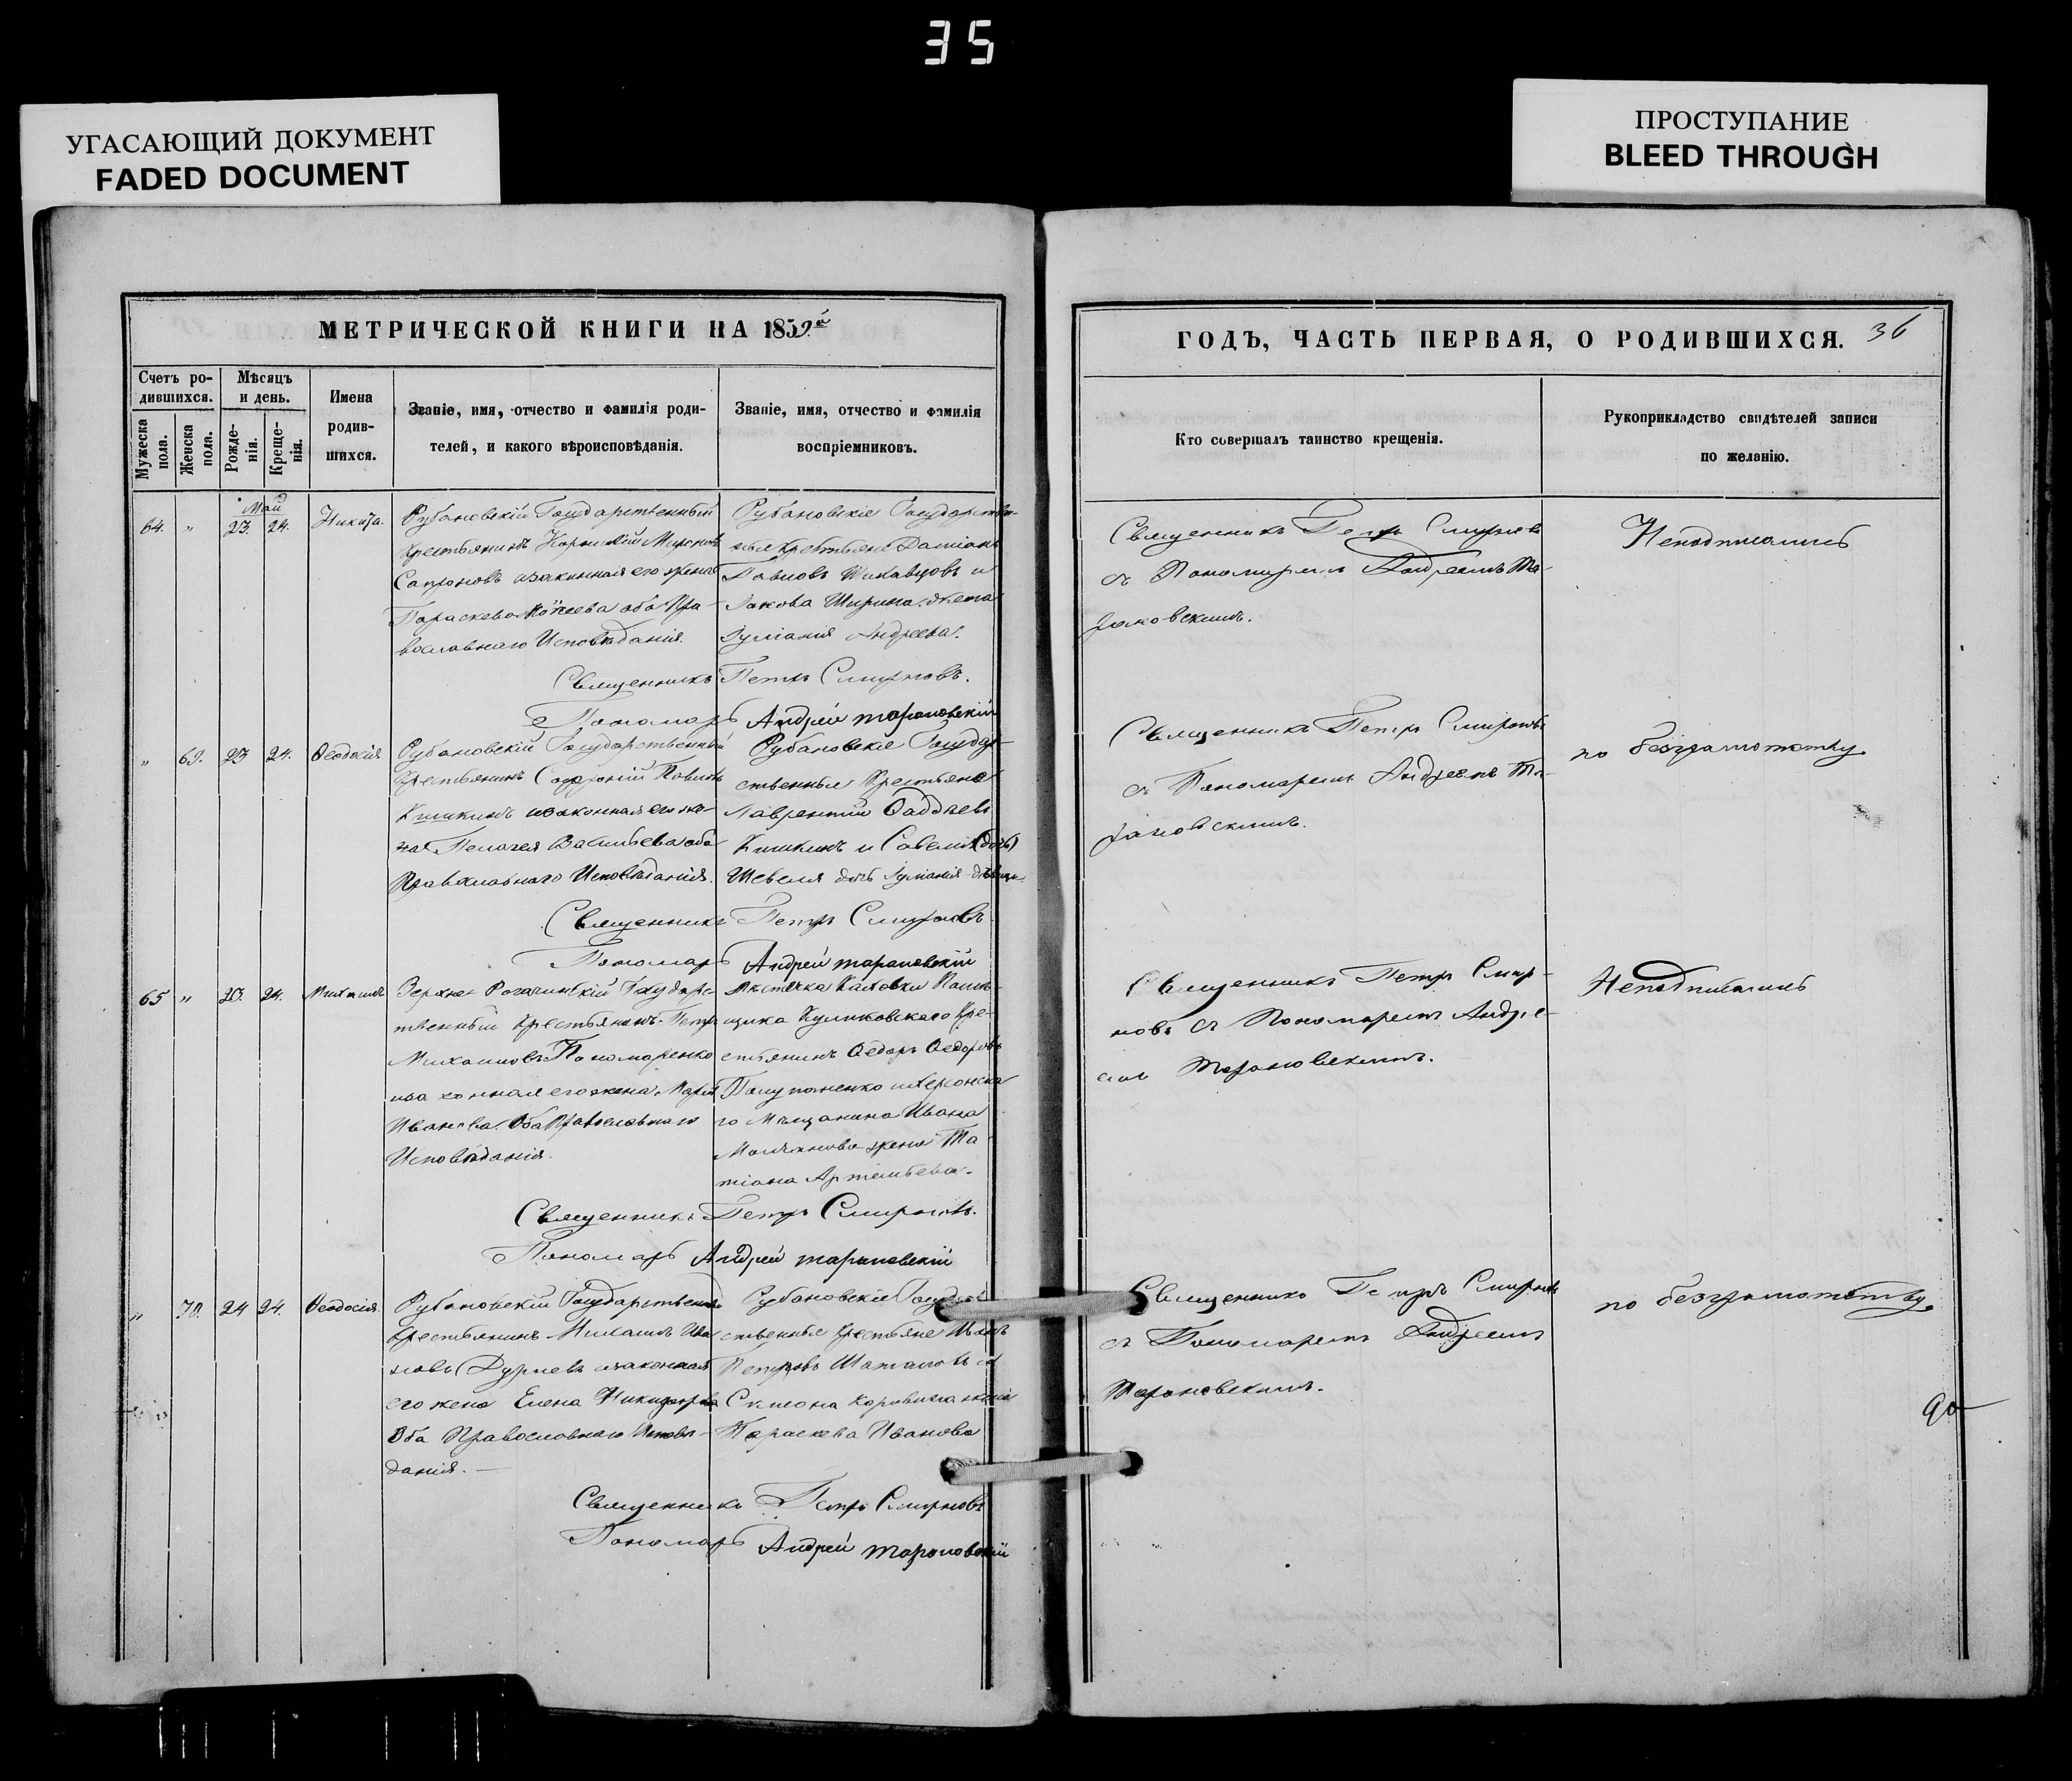 35
УГАСАЮЩИЙ ДОКУМЕНТ
FADED DOCUMENT
ПРОСТУПАНИЕ
BLEED THROUGH
МЕТРИЧЕСКОЙ КНИГИ НА 1859й
Счетъ ро-
дившихся.
Мужеска
пола.
Женска
пола.
Мѣсяцъ
и день.
Рожде-
нія.
Креще-
нія.
Имена
родив-
шихся.
Званіе, имя, отчество и фамилія роди-
телей, и какого вѣроисповѣданія.
Званіе, имя, отчество и фамилія
воспріемниковъ.
Май
64. " 23 24. Никита.
Рубановскій Государственный
Крестьянинъ Мироновъ
Сапроновъ изаконная его жена
Параскева оба Пра-
вославнаго Исповѣданія.
Рубановскіе Государствен-
ные Крестьяне Даміанъ
Павловъ и
Іакова жена
Іуліанія Андреева.
Священникъ Петръ Смирновъ.
Пономарь Андрей Тарановскій
" 69. 23 24. Ѳеодосія.
Рубановскій Государственный
Крестьянинъ Софроній Павловъ
Кишкинъ изаконная его же-
на Пелагея Васильева оба
Православнаго Исповѣданія.
Рубановскіе Государ-
ственные Крестьяне
Лаврентій Ѳаддѣевъ
Кишкинъ и Савелія (дочь)
Шевеля дочь Іуліанія дѣвица.
Священникъ Петръ Смирновъ
Пономарь Андрей Тарановскій
65 " 23. 24. Михаилъ
Верхне Рогачинскій Государс-
твенный Крестьянинъ Петръ
Михаиловъ Пономаренко
изаконная его жена Марія
Иванова. Оба Православнаго
Исповѣданія.
Мѣстечка Каховки Помѣ-
щика Куликовскаго Кре-
стьянинъ Ѳедоръ Ѳедоровъ
иХерсонска
го Мѣщанина Ивана
Молчанова жена Та-
тіана Артемьева.
Священникъ Петръ Смирновъ.
Пономарь Андрей Тарановскій
" 70. 24 24. Ѳеодосія.
Рубановскій Государственный
Крестьянинъ Михаилъ Ива
новъ Дурневъ изаконная
его жена Елена Никифорова
Оба Православнаго Исповѣ-
данія. —
Рубановскіе Государ-
ственные Крестьяне Иванъ
Петровъ Шаталовъ и
Симеона жена
Параскева Иванова
Священникъ Петръ Смирновъ
Пономарь Андрей Тарановскій
ГОДЪ, ЧАСТЬ ПЕРВАЯ, О РОДИВШИХСЯ. 36
Кто совершалъ таинство крещенія.
Рукоприкладство свидѣтелей записи
по желанію.
Священникъ Петръ Смирновъ
съ Пономаремъ Андреемъ Та-
рановскимъ.
Неподписались
Священникъ Петръ Смирновъ
съ Пономаремъ Андреемъ Та-
рановскимъ.
по безграмотству
Священникъ Петръ Смир-
новъ съ Пономаремъ Андре-
емъ Тарановскимъ.
Неподписались
Священникъ Петръ Смирновъ
съ Пономаремъ Андреемъ
Тарановскимъ.
по безграмотству.